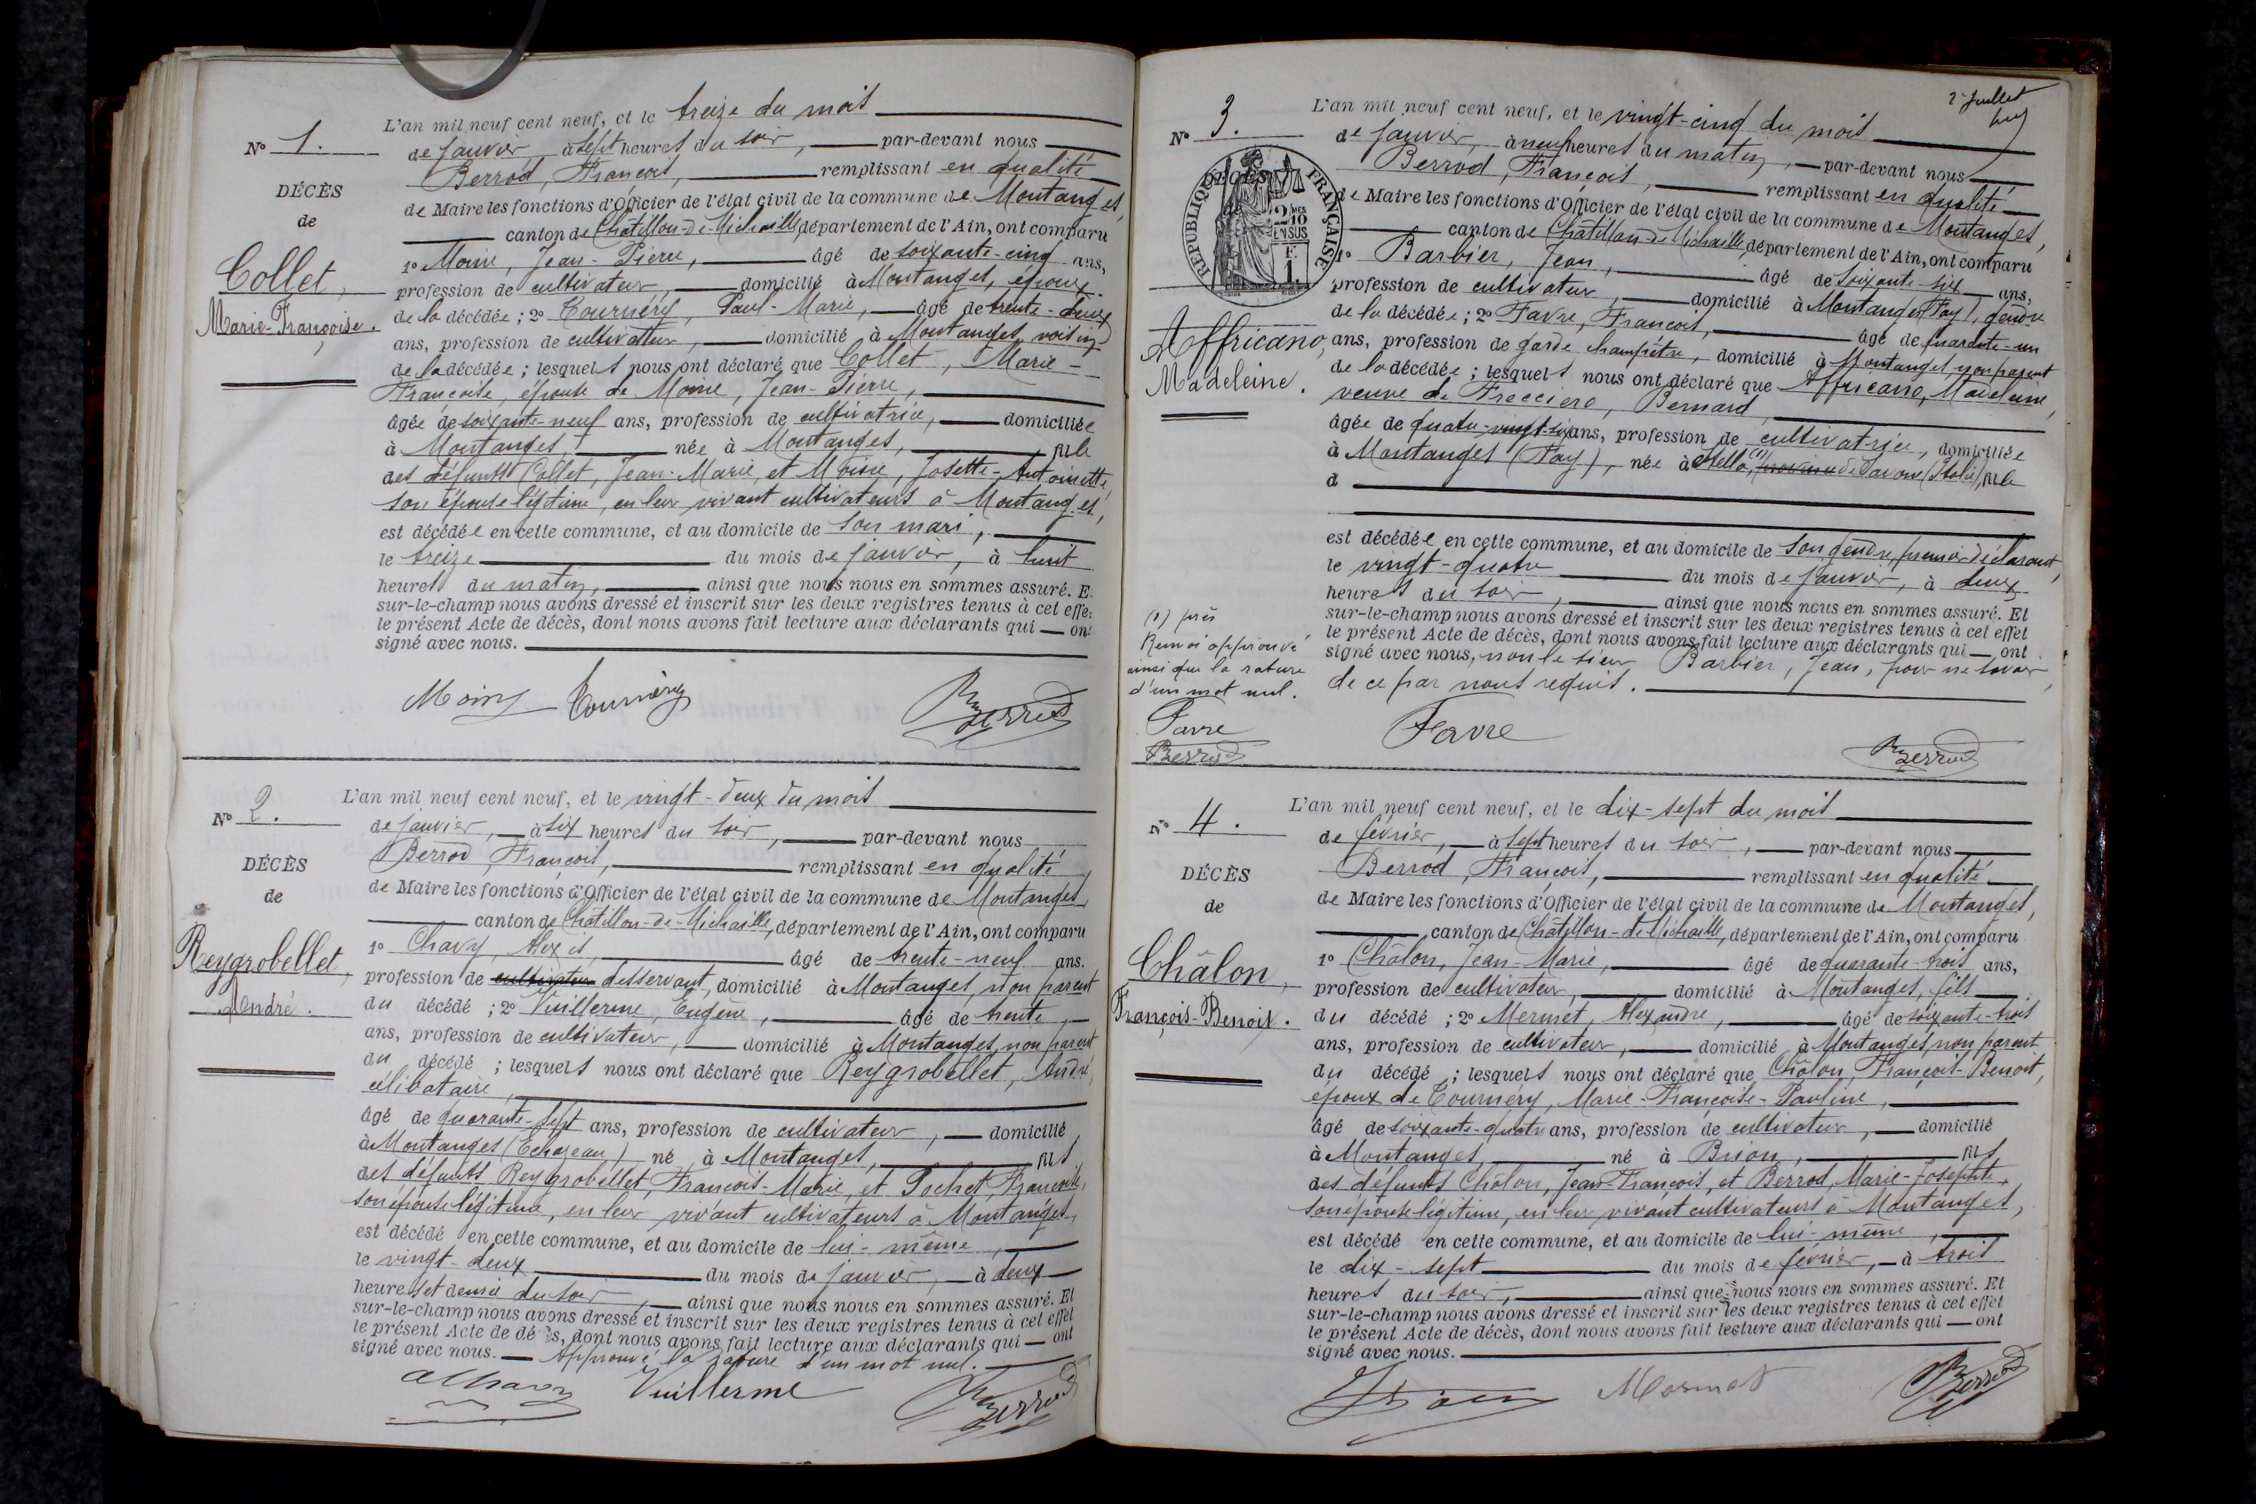 N° 1.
DÉCÈS
de
Collet,
Marie-Françoise.
L'an mil neuf cent neuf, et le treize du mois
de janvier à sept heures du soir, par-devant nous
Berrod, François, remplissant en qualité
de Maire les fonctions d'Officier de l'état civil de la commune de Montanges,
canton de Châtillon-de-Michaille, département de l'Ain, ont comparu
1° Moine, Jean-Pierre, âgé de soixante-cinq ans,
profession de cultivateur, domicilié à Montanges, époux
de la décédée ; 2° Tournéry, Paul-Marie, âgé de trente-deux
ans, profession de cultivateur, domicilié à Montanges, voisin
de la décédée ; lesquels nous ont déclaré que Collet, Marie-
Françoise, épouse de Moine, Jean-Pierre,
âgée de soixante-neuf ans, profession de cultivatrice, domiciliée
à Montanges, née à Montanges, fille
des défunts Collet, Jean-Marie, et Moine, Josette-Antoinette,
son épouse légitime, en leur vivant cultivateurs à Montanges,
est décédée en cette commune, et au domicile de son mari,
le treize du mois de janvier, à huit
heures du matin, ainsi que nous nous en sommes assuré. E
sur-le-champ nous avons dressé et inscrit sur les deux registres tenus à cet effe
le présent Acte de décès, dont nous avons fait lecture aux déclarants qui — on
signé avec nous.
Moine Tournéry Berrod
N° 2.
DÉCÈS
de
Reygrobellet,
André.
L'an mil neuf cent neuf, et le vingt-deux du mois
de janvier, à six heures du soir, par-devant nous
Berrod, François, remplissant en qualité
de Maire les fonctions d'Officier de l'état civil de la commune de Montanges
canton de Châtillon-de-Michaille, département de l'Ain, ont comparu
1° Chavy, Alexis, âgé de trente-neuf ans.
profession de cultivateur desservant, domicilié à Montanges, non parent
du décédé ; 2° Vuillerme, Eugène, âgé de trente
ans, profession de cultivateur, domicilié à Montanges, non parent
du décédé ; lesquels nous ont déclaré que Reygrobellet, André,
célibataire,
âgé de quarante-sept ans, profession de cultivateur, domicilié
à Montanges (Echazeau) né à Montanges, fils
des défunts Reygrobellet, François-Marie, et Pochet, Françoise,
son épouse légitime, en leur vivant cultivateurs à Montanges,
est décédé en cette commune, et au domicile de lui-même,
le vingt-deux du mois de janvier, à deux
heures et demie du soir, ainsi que nous nous en sommes assuré. Et
sur-le-champ nous avons dressé et inscrit sur les deux registres tenus à cet effet
le présent Acte de décès, dont nous avons fait lecture aux déclarants qui — ont
signé avec nous. — Approuvé la rature d'un mot nul.
AChavy Vuillerme Berrod
2 Juillet
N° 3.
DÉCÈS
RÉPUBLIQUE FRANÇAISE
2/10 EN SUS
F. 1.
Affricano,
Madeleine.
L'an mil neuf cent neuf, et le vingt-cinq du mois
de janvier, à neuf heures du matin, par-devant nous
Berrod, François, remplissant en qualité
de Maire les fonctions d'Officier de l'état civil de la commune de Montanges,
canton de Châtillon-de-Michaille, département de l'Ain, ont comparu
1° Barbier, Jean, âgé de soixante-six ans,
profession de cultivateur, domicilié à Montanges (Fay), gendre
de la décédée ; 2° Favre, François, âgé de quarante-un
ans, profession de garde champêtre, domicilié à Montanges non parent
de la décédée ; lesquels nous ont déclaré que Affricano, Madeleine,
veuve de Frecciero, Bernard,
âgée de quatre-vingt-six ans, profession de cultivatrice, domiciliée
à Montanges (Fay), née à Stella, (1) province de Savone (Italie), fille
d
est décédée en cette commune, et au domicile de son gendre, premier déclarant,
le vingt-quatre du mois de janvier, à deux
heures du soir, ainsi que nous nous en sommes assuré. Et
sur-le-champ nous avons dressé et inscrit sur les deux registres tenus à cet effet
le présent Acte de décès, dont nous avons fait lecture aux déclarants qui — ont
signé avec nous, non le sieur Barbier, Jean, pour ne savoir,
de ce par nous requis.
(1) près
Renvoi approuvé
ainsi que la rature
d'un mot nul.
Favre
Berrod
Favre Berrod
N° 4.
DÉCÈS
de
Châlon,
François-Benoit.
L'an mil neuf cent neuf, et le dix-sept du mois
de février, à sept heures du soir, par-devant nous
Berrod, François, remplissant en qualité
de Maire les fonctions d'Officier de l'état civil de la commune de Montanges,
canton de Châtillon-de-Michaille, département de l'Ain, ont comparu
1° Châlon, Jean-Marie, âgé de quarante-trois ans,
profession de cultivateur, domicilié à Montanges, fils
du décédé ; 2° Mermet, Alexandre, âgé de soixante-trois
ans, profession de cultivateur, domicilié à Montanges, non parent
du décédé ; lesquels nous ont déclaré que Châlon, François-Benoit,
époux de Tournéry, Marie-Françoise-Pauline,
âgé de soixante-quatre ans, profession de cultivateur, domicilié
à Montanges, né à Brion, fils
des défunts Châlon, Jean-François, et Berrod, Marie-Josephte,
son épouse légitime, en leur vivant cultivateurs à Montanges,
est décédé en cette commune, et au domicile de lui-même,
le dix-sept du mois de février, à trois
heures du soir, ainsi que nous nous en sommes assuré. Et
sur-le-champ nous avons dressé et inscrit sur les deux registres tenus à cet effet
le présent Acte de décès, dont nous avons fait lecture aux déclarants qui — ont
signé avec nous.
Mermet Berrod